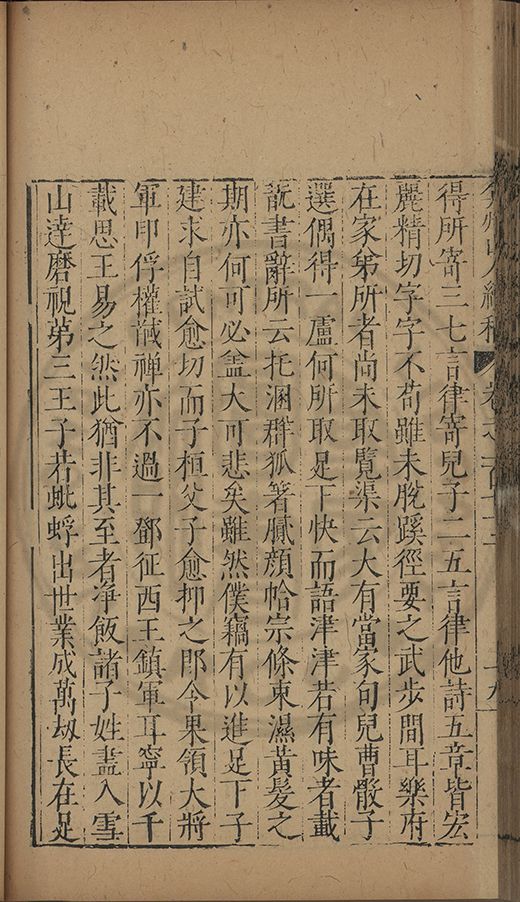 弇州山人續稿 卷之一百十二 十九
得所寄三七言律寄兒子二五言律他詩五章皆宏
麗精切字字不苟雖未脫蹊徑要之武步間耳樂府
在家弟所者尚未取覽渠云大有當家句兒曹骰子
選偶得一盧何所取足下快而語津津若有味者載
䛁書辭所云托溷群狐著膩顏帢宗條束濕黃髮之
期亦何可必盖大可悲矣雖然僕竊有以進足下子
建求自試愈切而子桓父子愈抑之郎令果領大將
軍印俘權馘禪亦不過一鄧征西王鎮軍耳寧以千
載思王易之然此猶非其至者净飯諸子姓盡入雪
山達磨視第三王子若蚍蜉出世業成萬刼長在足